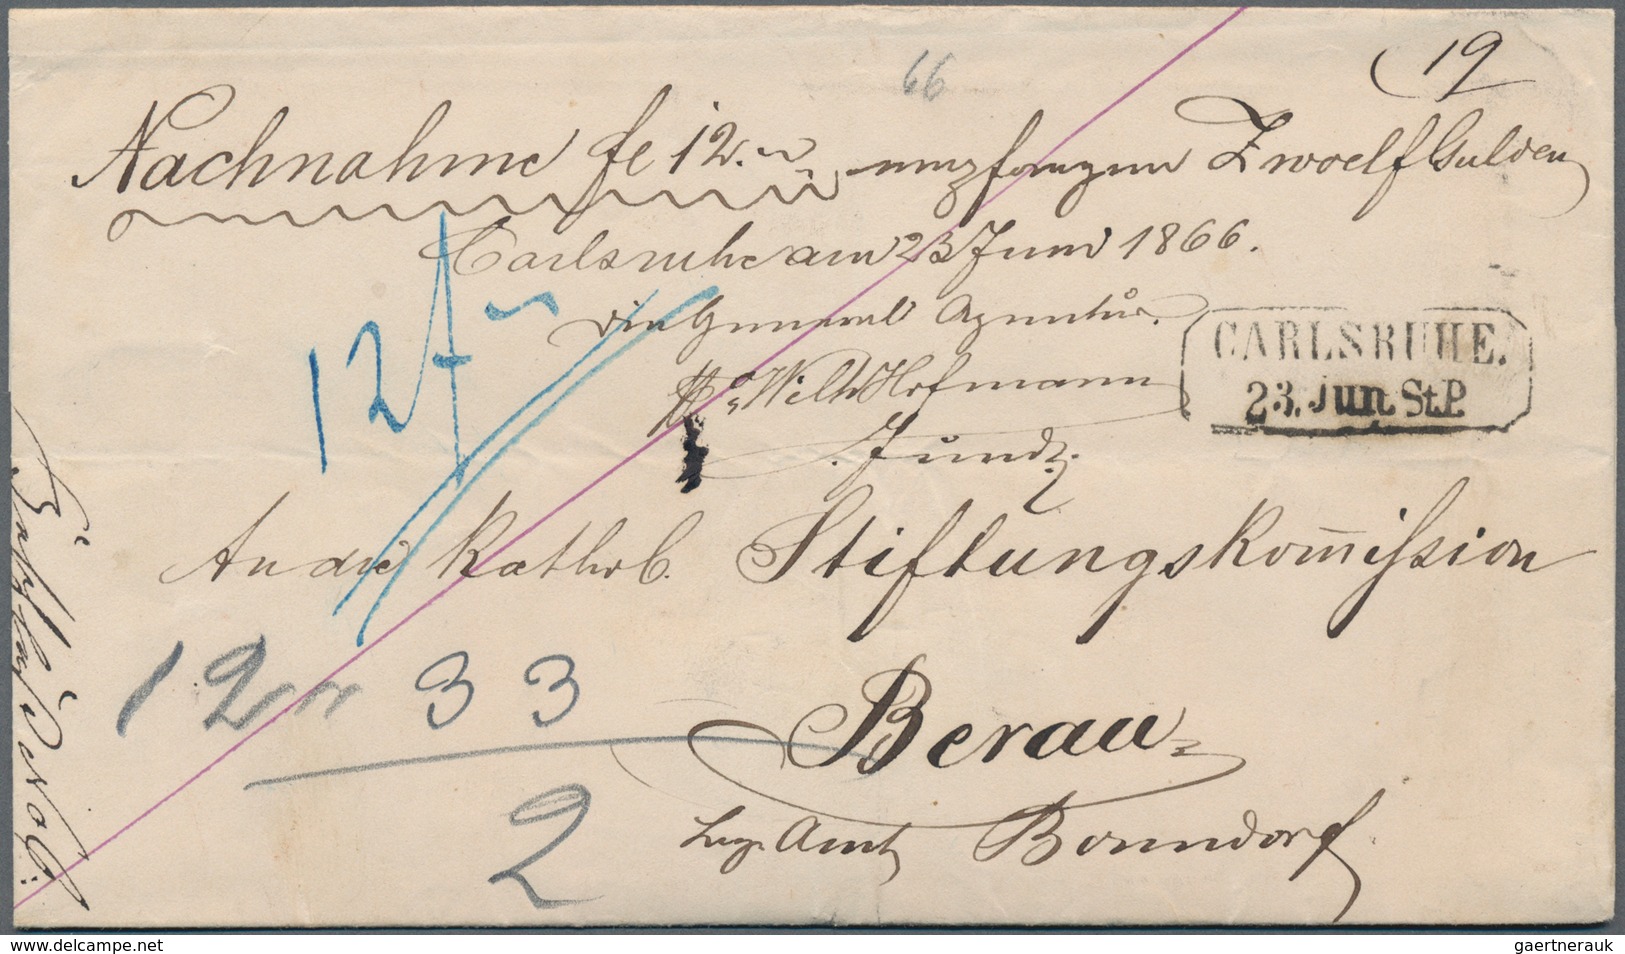 19
66
Nachnahme fl 12. empfangen Zwoelf Gulden
Carlsruhe am 23 Juni 1866.
die General Agentur.
Wilh Hofmann
CARLSRUHE.
23. Jun. St.P.
12 f
An die Kathol. Stiftungskom̅ißion
12 33
Berau
2
Amt Bonndorf
delcampe.net
gaertnerauk